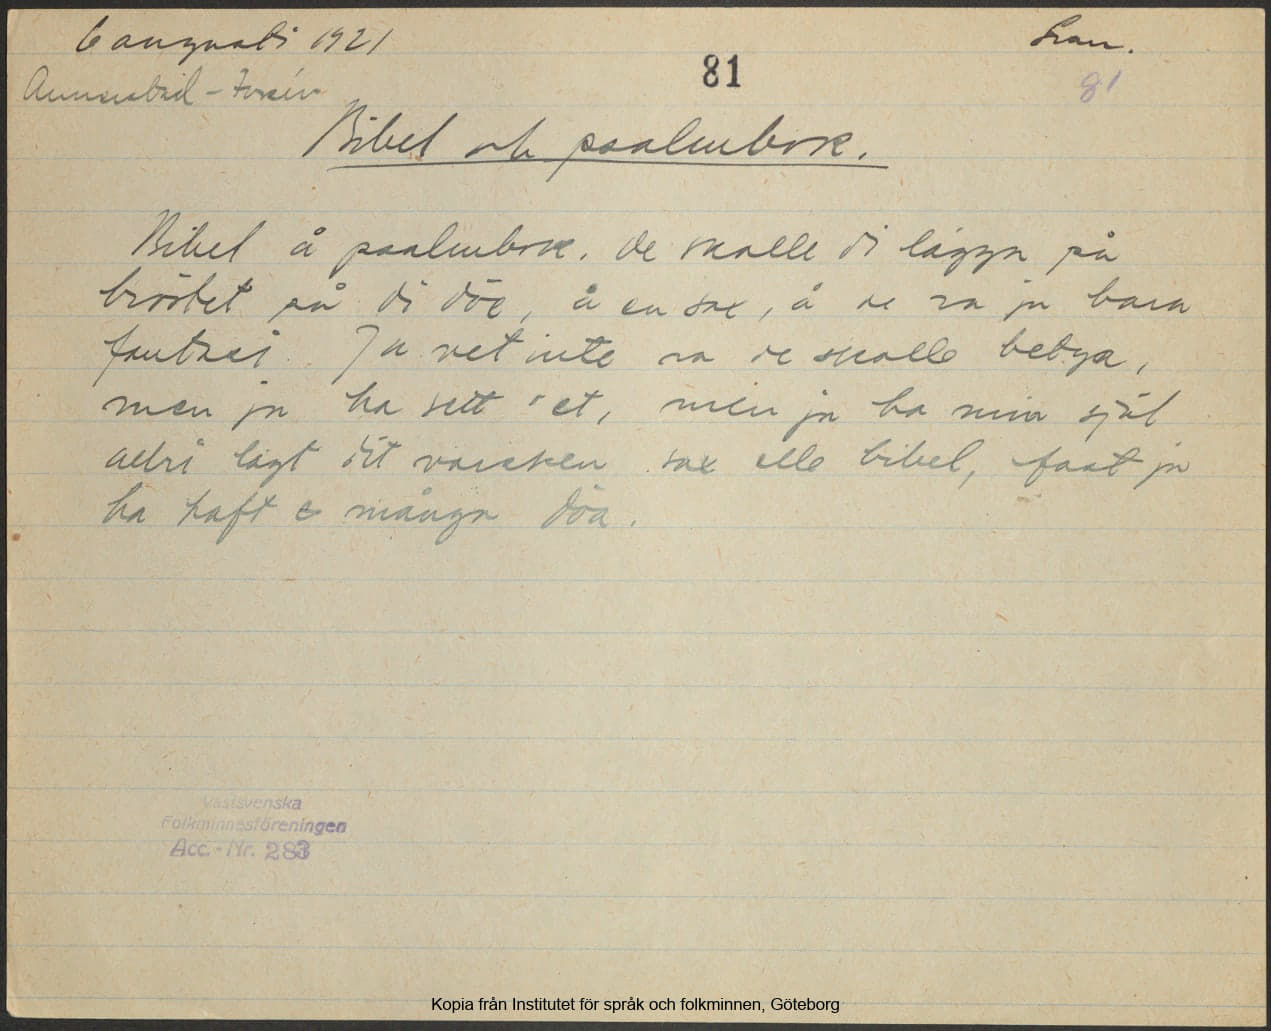 6 augusti 1921
81
81
Bibel och psalmbok.
Bibel å psalmbok, de skolle di lägga på
bröstet på di döe, å en sax, å de va ju bara
fantasi. Ja vet inte va de skolle betya,
men ja ha sett 'et, men ja ha min själ
aldri lagt dit varsken sax elle bibel, fast ja
ha haft så många döa.
Västsvenska
Folkminnesföreningen
Acc.-Nr. 283
Kopia från Institutet för språk och folkminnen, Göteborg